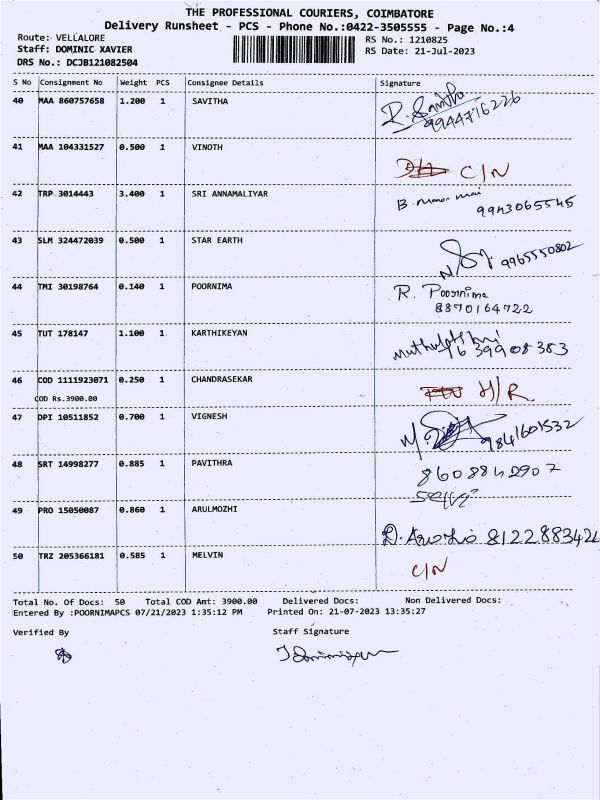 THE PROFESSIONAL COURIERS, COIMBATORE
Delivery Runsheet - PCS - Phone No.:0422-3505555 - Page No.:4
Route: VELLALORE
RS No.: 1210825
Staff: DOMINIC XAVIER
RS Date: 21-Jul-2023
DRS No.: DCJB121082504
S No Consignment No Weight PCS Consignee Details Signature
40 MAA 860757658 1.200 1 SAVITHA
9944716226
41 MAA 104331527 0.500 1 VINOTH C/N
42 TRP 3014443 3.400 1 SRI ANNAMALIYAR
9943065545
43 SLM 324472039 0.500 1 STAR EARTH 9965550802
44 TMI 30198764 0.140 1 POORNIMA R. Poornima
8870164722
45 TUT 178147 1.100 1 KARTHIKEYAN
46 COD 1111923071 0.250 1 CHANDRASEKAR
COD Rs.3900.00
47 DPI 10511852 0.700 1 VIGNESH 9841601532
48 SRT 14998277 0.885 1 PAVITHRA
Selvi
49 PRO 15050087 0.860 1 ARULMOZHI
50 TRZ 205366181 0.585 1 MELVIN C/N
Total No. Of Docs: 50 Total COD Amt: 3900.00 Delivered Docs: Non Delivered Docs:
Entered By :POORNIMAPCS 07/21/2023 1:35:12 PM Printed On: 21-07-2023 13:35:27
Verified By Staff Signature